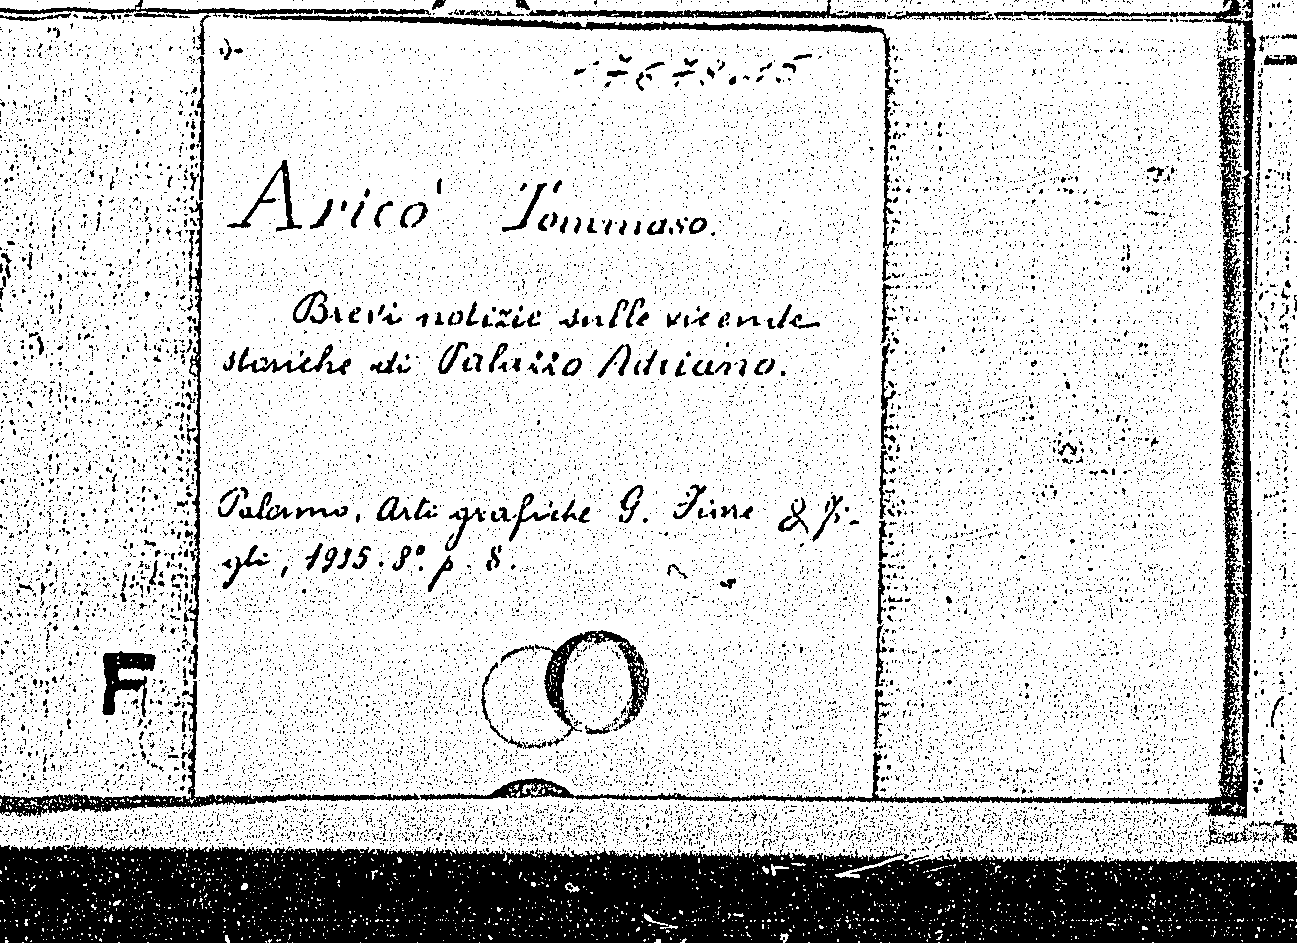 Arico' Tommaso.
Brevi notizie sulle vicende
storiche di Palazzo Adriano.
Palermo, Arti grafiche G. Fiore & Fi-
gli, 1915. 8º. p. 8.
F